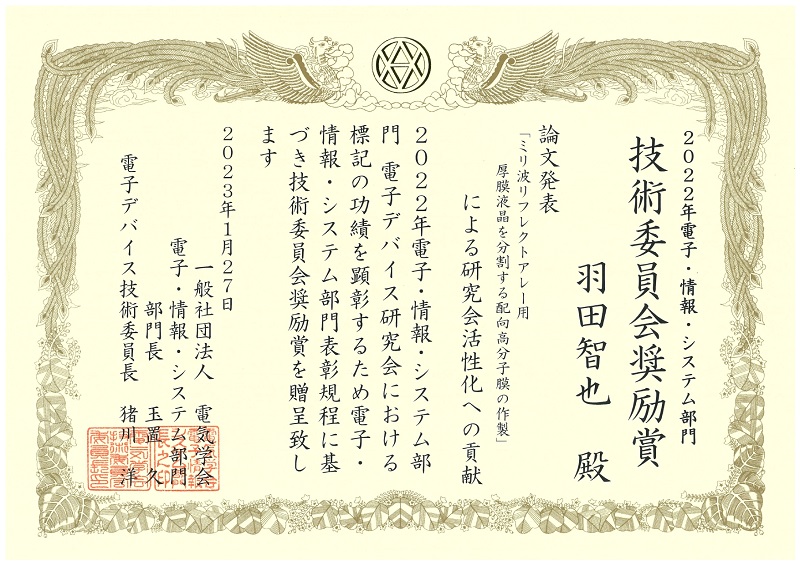 2022年電子・情報・システム部門
技術委員会奨励賞
羽田智也 殿
論文発表
「ミリ波リフレクトアレー用
厚膜液晶を分割する配向高分子膜の作製」
による研究会活性化への貢献
2022年電子・情報・システム部
門 電子デバイス研究会における
標記の功績を顕彰するため電子・
情報・システム部門表彰規程に基
づき技術委員会奨励賞を贈呈致し
ます
2023年1月27日
一般社団法人 電気学会
電子・情報・システム部門
部門長 玉置 久
電子デバイス技術委員長 猪川 洋